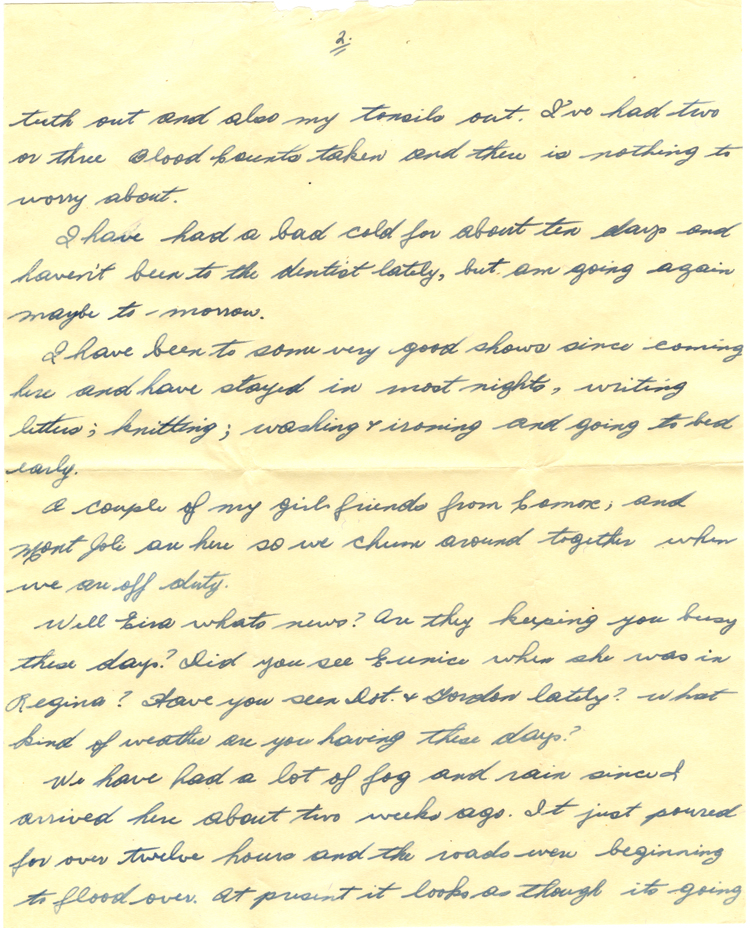 2.
teeth out and also my tonsils out. I've had two
or three Blood Counts taken and there is nothing to
worry about.
I have had a bad cold for about ten days and
haven't been to the dentist lately, but am going again
maybe to-morrow.
I have been to some very good shows since coming
here and have stayed in most nights, writing
letters; knitting; washing & ironing and going to bed
early.
A couple of my girl friends from Comox, and
Mont Joli are here so we chum around together when
we are off duty.
Well Eira whats news? Are they keeping you busy
these days? Did you see Eunice when she was in
Regina? Have you seen Dot. & Gordon lately? What
kind of weather are you having these days?
We have had a lot of fog and rain since I
arrived here about two weeks ago. It just poured
for over twelve hours and the roads were beginning
to flood over. At present it looks as though its going